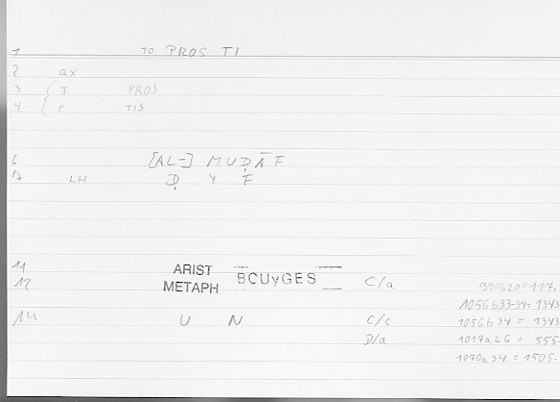 1 TO PROS TI
2 ax
3 T PROS
4 P TIS
6 [AL-] MUḌĀF
7 LH Ḍ Y F
11 ARIST
12 METAPH BCUyGES C/a 990b20=117.
1056b33-34=1343
14 U N C/c 1056b34 = 1343
D/a 1017a26 = 555-
1070a34 = 1505-